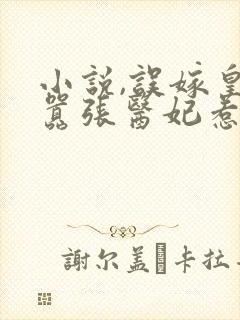 小说,誤嫁皇
囂張醫妃惹
謝尔盖�卡拉